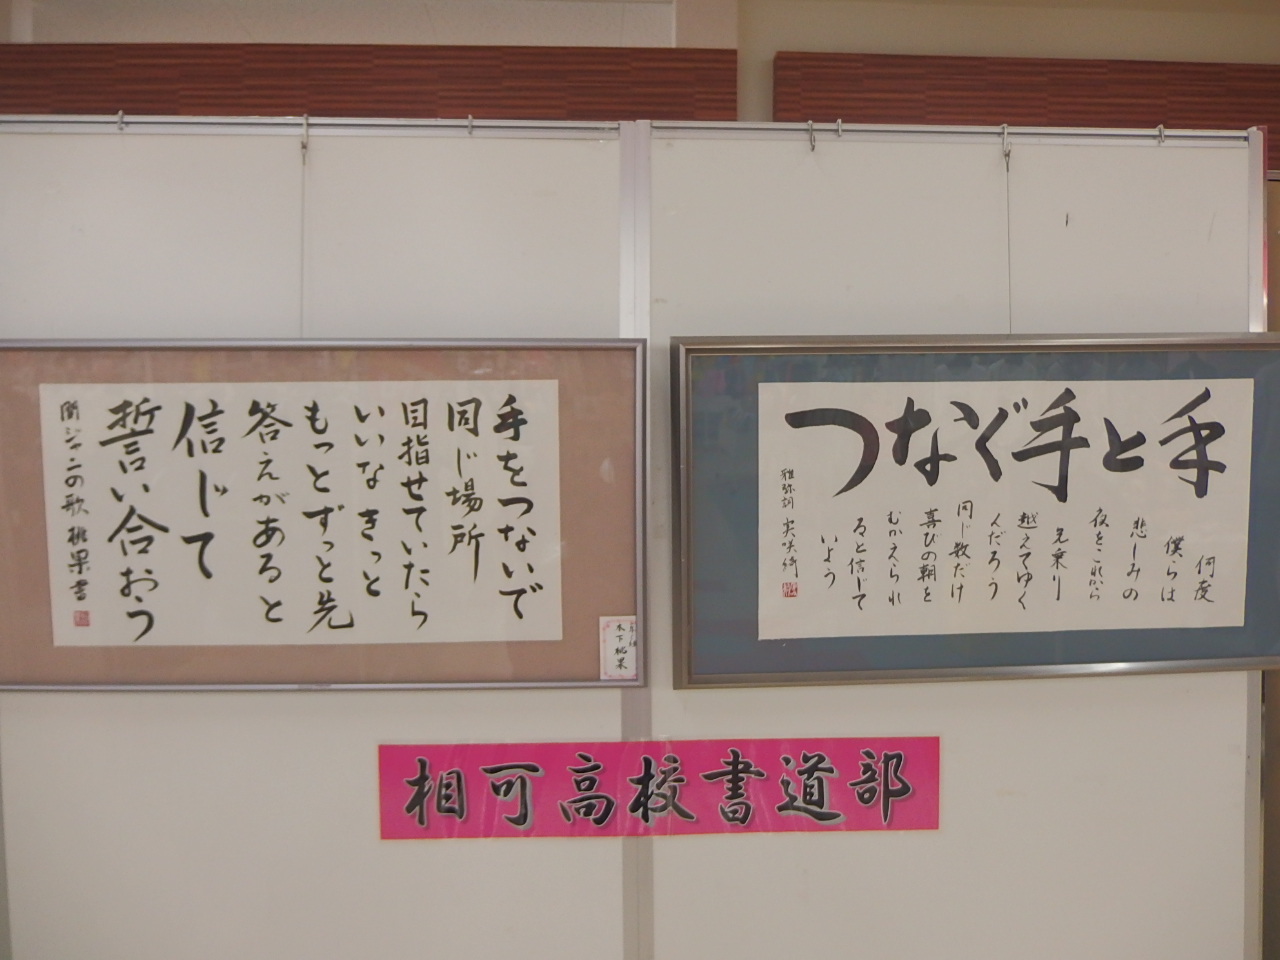 手と手つなぐ
何度
僕らは
悲しみの
夜をこれから
先乗り
越えてゆく
んだろう
同じ数だけ
喜びの朝を
むかえられ
ると信じて
いよう
雅弥詞 実咲綺
手をつないで
同じ場所
目指せていたら
いいな きっと
もっとずっと先
答えがあると
信じて
誓い合おう
関ジャニの歌 桃果書
木下桃果
相可高校書道部